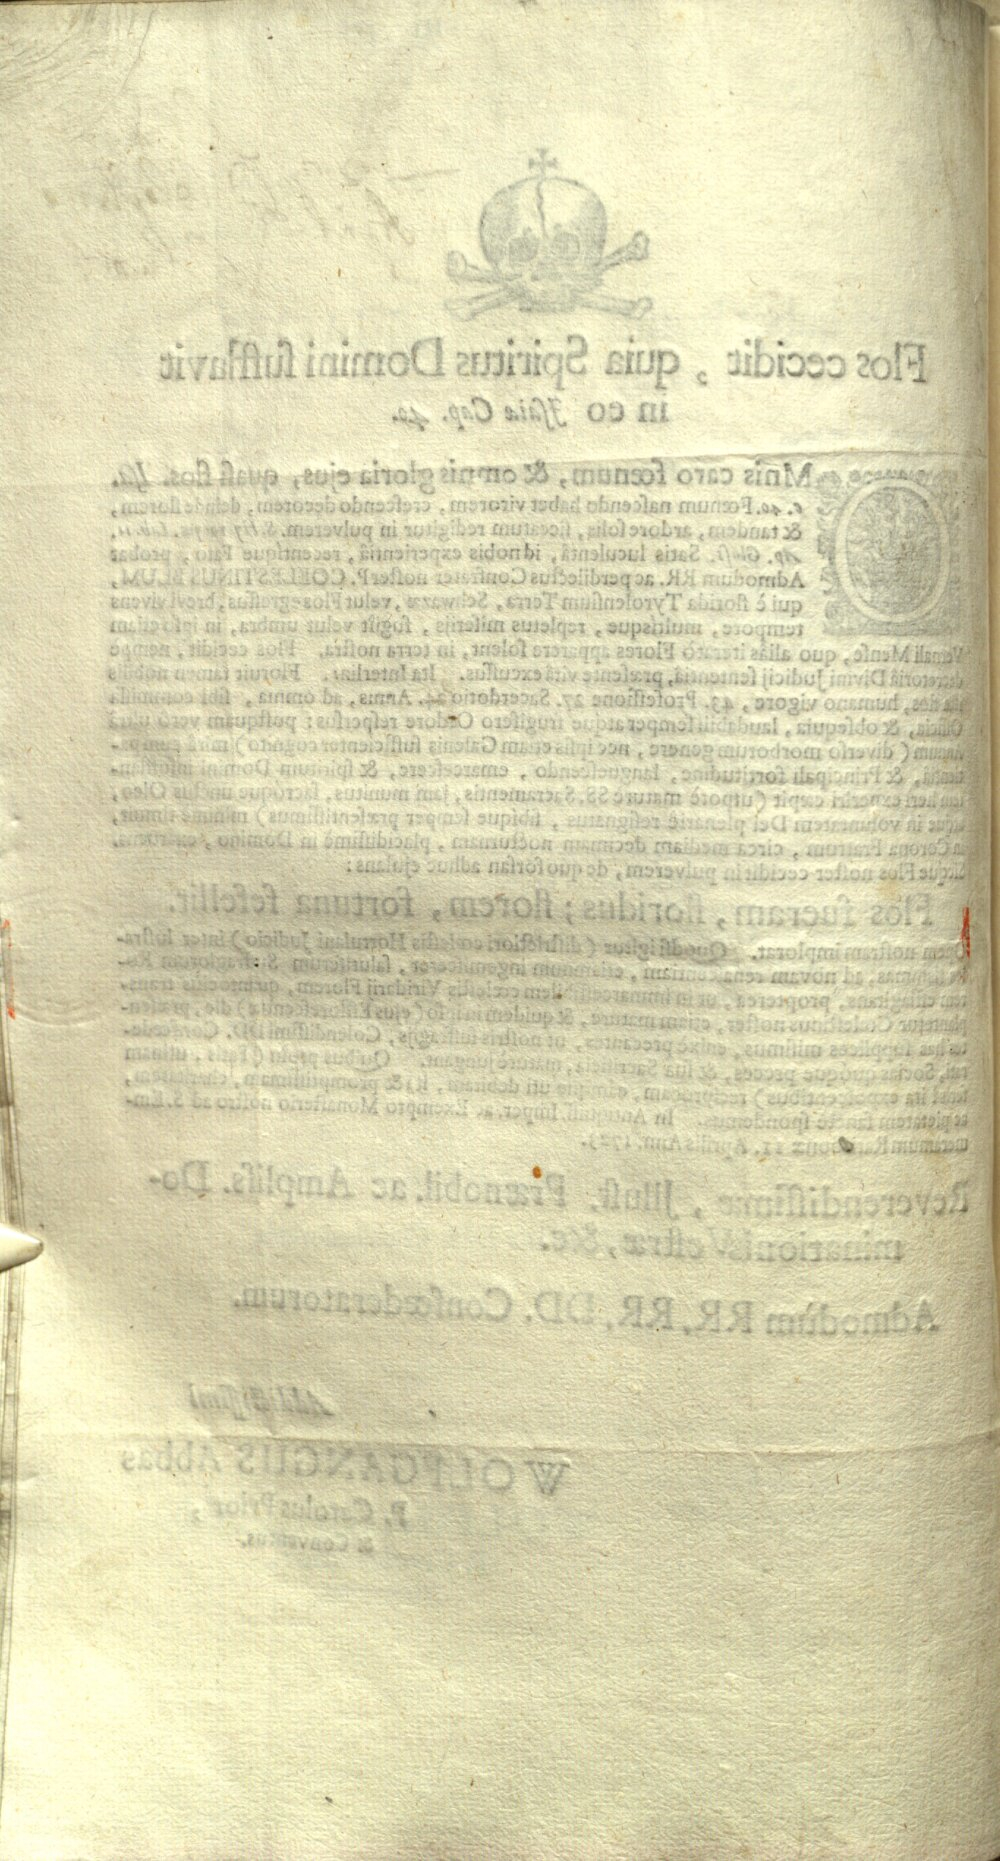 Flos cecidit, quia Spiritus Domini sufflavit
in eo Isaiæ Cap. 40.
OMnis caro fœnum, & omnis gloria ejus, quasi flos. Isa.
c. 40. Fœnum nascendo habet virorem, crescendo decorem, dehisce florem,
& tandem, ardore solis, siccatum redigitur in pulverem.
ap. Gloss. Satis luculentâ, id nobis experientiâ, recentique Fato, probat
Admodum RR. ac perdilectus Confrater noster P. COELESTINUS BLUM,
qui è florida Tyrolensium Terra, Schwazæ, velut Flos egressus, brevi vivens
tempore, multisque, repletus miserijs, fugit velut umbra, in ipso etiam
Vernali Mense, quo aliàs iteratò Flores apparere solent, in terra nostra. Flos cecidit, nempe
decretoriâ Divini Judicij sententiâ, præsente vitâ excussus. Ita Interlin: Floruit tamen nobilis
iste flos, humano vigore, 43. Professione 27. Sacerdotio 24. Annis, ad omnia, sibi commissa
Officia, & obsequia, laudabili semper atque frugifero Ordore respersus; postquam verò ultra
Annum (diverso morborum genere, nec ipsis etiam Galenis sufficienter cognito) mirâ cum pa-
tientiâ, & Principali fortitudine, languescendo, emarcescere, & spiritum Domini insufflan-
tem fieri experiri cœpit (utpotè maturè SS. Sacramentis, jam munitus, sacroque unctus Oleo,
atque in voluntatem Dei plenariè resignatus, sibique semper præsentissimus) minimè timuit,
in Corona Fratrum, circa mediam decimam nocturnam, placidissimè in Domino,
sicque Flos noster cecidit in pulverem, de quo forsan adhuc ejulans:
Flos fueram, floridus; florem, fortuna fefellit.
Opem nostram implorat. Quodsi igitur (districtiori cœlestis Hortulani Judicio) inter lustra-
les flammas, ad novam renascentiam, etiamnum ingemisceret, salutiferum Suffragiorum Ro-
rem efflagitans, propterea, ut in Immarcessibilem cœlestis Viridarii Florem, quantocitiùs trans-
plantetur Cœlestinus noster, etiam maturè, & quidem in ipso (ejus Efflorescentiæ) die, præsen-
tes has supplices mittimus, enixè precantes, ut nostris suffragijs, Colendissimi DD. Confœde-
rati, Socias quóque preces, & sua Sacrificia, maturè jungant. Quibus prosit (Fatis, utinam
serùs ita exposcentibus) reciprocam, eámque uti debitam, ita & promptissimam, charitatem,
ac pietatem sanctè spondemus. In Antiquiss. Imper. ac Exempto Monasterio nostro ad S. Em-
meramum Ratisbonæ 11. Aprilis Ann. 1723.
Reverendissimæ, Illust. Prænobil. ac Ampliss. Do-
minationis Vestræ, &c.
Admodùm RR. RR. DD. Confœderatorum.
Addictissimi
WOLFGANGUS Abbas
P. Carolus Prior,
& Conventus.